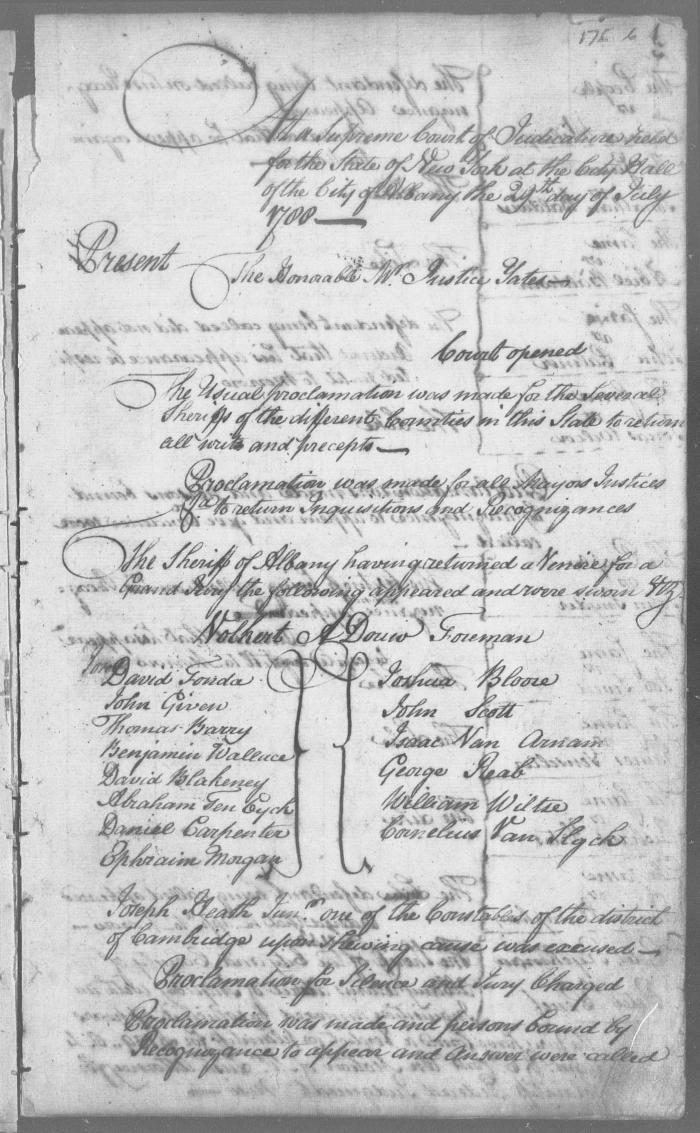 176 6
At a Supreme Court of Judicature held
for the State of New York at the City Hall
of the City of Albany the 29th day of July
1788
Present
The Honorable Mr. Justice Yates
Court opened
The Usual proclamation was made for the several
Sheriffs of the different Counties in this State to return
all writs and precepts
Proclamation was made for all Mayors Justices
&ca to return Inquisitions and Recognizances
The Sheriff of Albany having returned a Venire for a
Grand Jury the following appeared and were sworn Viz
Volkert A Douw Foreman
David Fonda
John Given
Thomas Barry
Benjamin Wallace
David Blakeney
Abraham Ten Eyck
Daniel Carpenter
Ephraim Morgan
Joshua Bloore
John Scott
Isaac Van Arnam
George Reab
William Wiltse
Cornelius Van Slyck
Joseph Heath Junr. one of the Constables of the district
of Cambridge upon shewing cause was excused
Proclamation for Silence and Jury Charged
Proclamation was made and persons bound by
Recognizance to appear and Answer were called